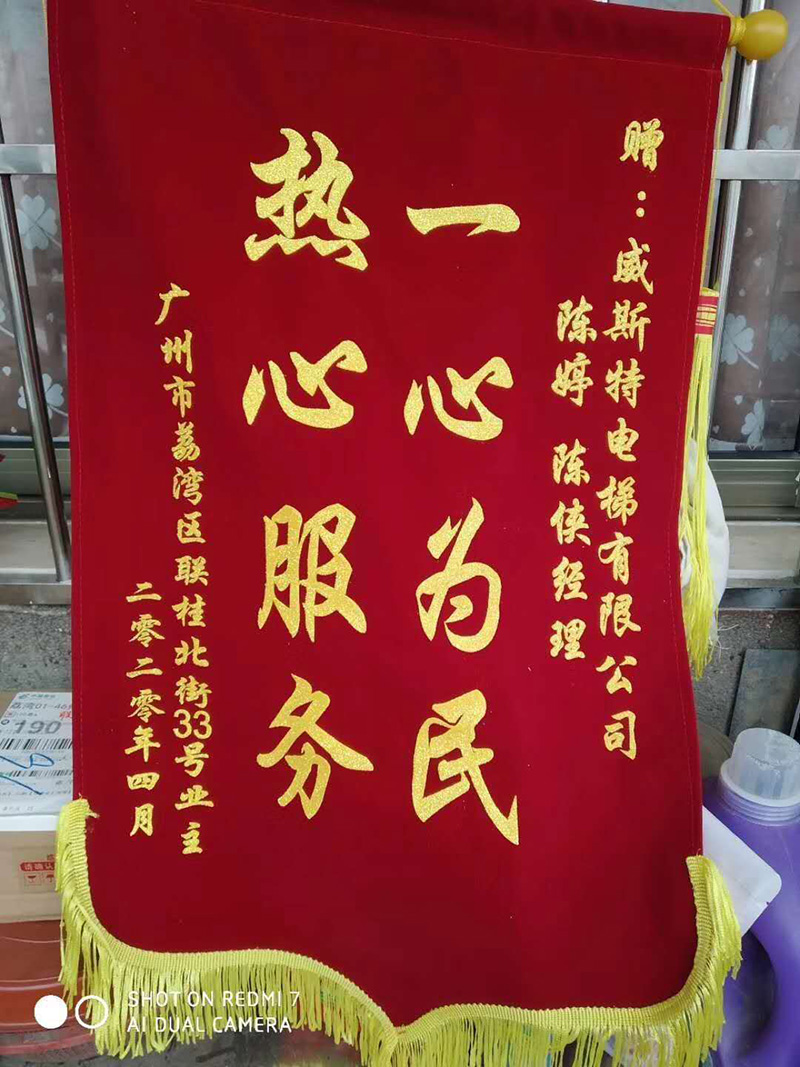 赠：威斯特电梯有限公司
陈婷 陈侠经理
一心为民
热心服务
广州市荔湾区联桂北街33号业主
二零二零年四月
190
SHOT ON REDMI 7
AI DUAL CAMERA